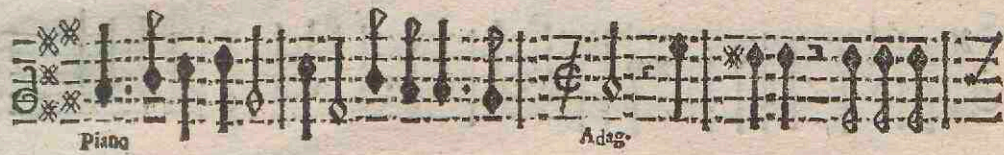 Piano Adag.